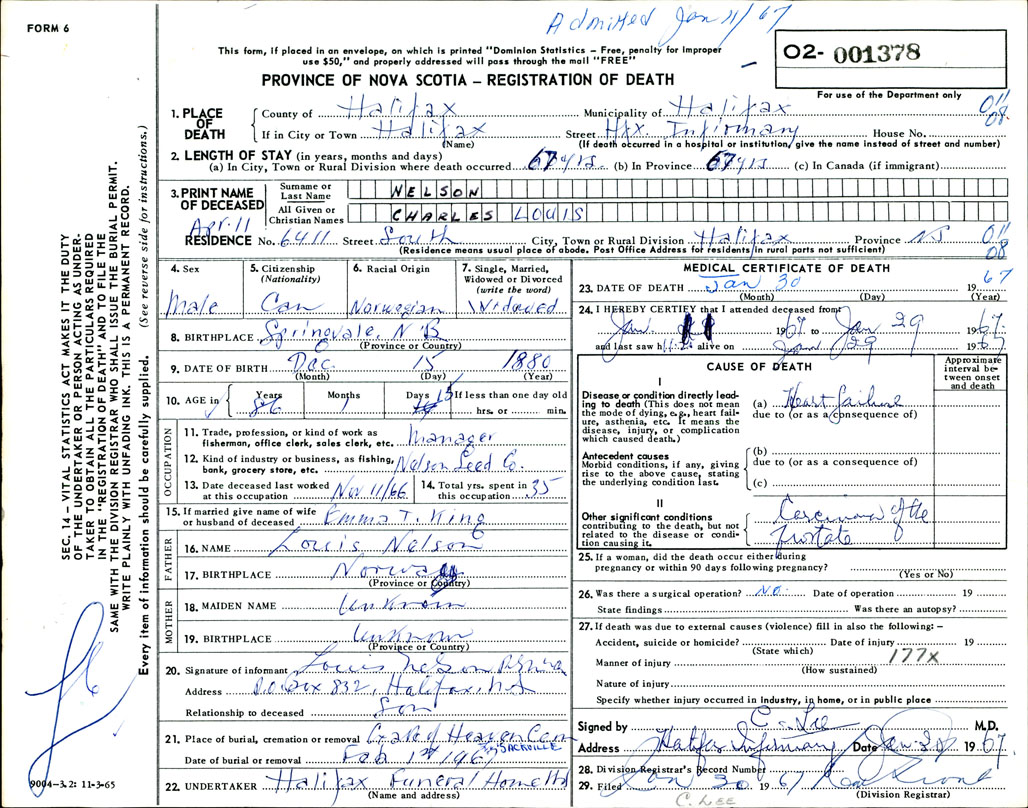 Admitted Jan 11/67
FORM 6
This form, if placed in an envelope, on which is printed "Dominion Statistics – Free, penalty for improper
use $50," and properly addressed will pass through the mail "FREE"
PROVINCE OF NOVA SCOTIA – REGISTRATION OF DEATH
O2- 001378
For use of the Department only
1. PLACE OF DEATH
County of Halifax Municipality of Halifax 011
If in City or Town Halifax Street Hfx. Infirmary House No. 08
(Name) (If death occurred in a hospital or institution, give the name instead of street and number)
2. LENGTH OF STAY (in years, months and days)
(a) In City, Town or Rural Division where death occurred 67 yrs (b) In Province 67 yrs (c) In Canada (if immigrant)
3. PRINT NAME OF DECEASED
Surname or Last Name NELSON
All Given or Christian Names CHARLES LOUIS
Apr. 11
RESIDENCE No. 6411 Street South City, Town or Rural Division Halifax Province NS 011
(Residence means usual place of abode. Post Office Address for residents in rural parts not sufficient) 08
4. Sex
Male
5. Citizenship
(Nationality)
Can
6. Racial Origin
Norwegian
7. Single, Married,
Widowed or Divorced
(write the word)
Widowed
8. BIRTHPLACE Springvale, N B
(Province or Country)
9. DATE OF BIRTH Dec 15 1880
(Month) (Day) (Year)
10. AGE in Years Months Days If less than one day old
86 1 15 hrs. or min.
OCCUPATION
11. Trade, profession, or kind of work as
fisherman, office clerk, sales clerk, etc. Manager
12. Kind of industry or business, as fishing,
bank, grocery store, etc. Nelson Seed Co.
13. Date deceased last worked
at this occupation Nov 11/66
14. Total yrs. spent in
this occupation 35
15. If married give name of wife
or husband of deceased Emma T. King
FATHER
16. NAME Louis Nelson
17. BIRTHPLACE Norway
(Province or Country)
MOTHER
18. MAIDEN NAME Unknown
19. BIRTHPLACE Unknown
(Province or Country)
20. Signature of informant Louis Nelson
Address P.O. Box 832, Halifax, N.S
Relationship to deceased Son
21. Place of burial, cremation or removal Gate of Heaven Cem
SACKVILLE
Date of burial or removal Feb 1st 1967
22. UNDERTAKER Halifax Funeral Home Ltd
(Name and address)
MEDICAL CERTIFICATE OF DEATH
23. DATE OF DEATH Jan 30 1967
(Month) (Day) (Year)
24. I HEREBY CERTIFY that I attended deceased from
Jan 11 1967 to Jan 29 1967
and last saw him alive on Jan 29 1967
CAUSE OF DEATH
Approximate interval between onset and death
I
Disease or condition directly leading to death (This does not mean the mode of dying, e.g., heart failure, asthenia, etc. It means the disease, injury, or complication which caused death.)
(a) Heart failure
due to (or as a consequence of)
Antecedent causes
Morbid conditions, if any, giving rise to the above cause, stating the underlying condition last.
(b)
due to (or as a consequence of)
(c)
II
Other significant conditions
contributing to the death, but not related to the disease or condition causing it.
Carcinoma of the
prostate
25. If a woman, did the death occur either during
pregnancy or within 90 days following pregnancy?
(Yes or No)
26. Was there a surgical operation? No. Date of operation 19
State findings Was there an autopsy?
27. If death was due to external causes (violence) fill in also the following: –
Accident, suicide or homicide? Date of injury 19
(State which)
Manner of injury 177X
(How sustained)
Nature of injury
Specify whether injury occurred in industry, in home, or in public place
Signed by C. S. Lee M.D.
Address Halifax Infirmary Date Jan. 30 1967
28. Division Registrar's Record Number
29. Filed Jan 30 1967
(Division Registrar)
C. LEE
SEC. 14 – VITAL STATISTICS ACT MAKES IT THE DUTY
OF THE UNDERTAKER OR PERSON ACTING AS UNDER-
TAKER TO OBTAIN ALL THE PARTICULARS REQUIRED
IN THE "REGISTRATION OF DEATH" AND TO FILE THE
SAME WITH THE DIVISION REGISTRAR WHO SHALL ISSUE THE BURIAL PERMIT.
WRITE PLAINLY WITH UNFADING INK. THIS IS A PERMANENT RECORD.
Every item of information should be carefully supplied. (See reverse side for instructions.)
9004-3.2: 11-3-65